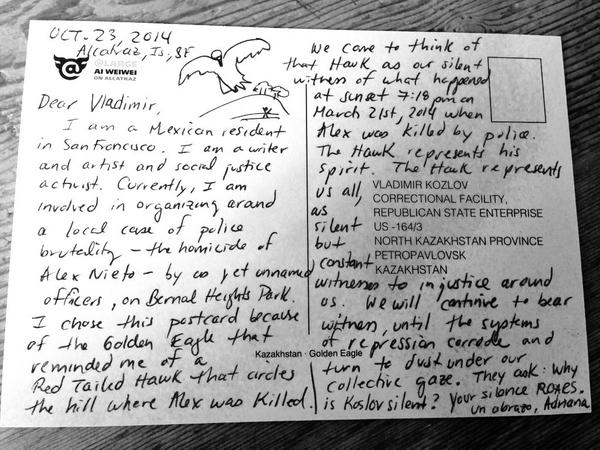 OCT. 23, 2014
Alcatraz, Is., SF
@LARGE
AI WEIWEI
ON ALCATRAZ
Dear Vladimir,
I am a Mexican resident
in San Francisco. I am a writer
and artist and social justice
activist. Currently, I am
involved in organizing around
a local case of police
brutality – the homicide of
Alex Nieto – by as yet unnamed
officers, on Bernal Heights Park.
I chose this postcard because
of the Golden Eagle that
reminded me of a
Red Tailed Hawk that circles
the hill where Alex was killed.
We came to think of
that Hawk as our silent
witness of what happened
at sunset 7:18 pm on
March 21st, 2014 when
Alex was killed by police.
The Hawk represents his
spirit. The Hawk represents
us all,
as
silent
but
constant
witnesses to injustice around
us. We will continue to bear
witness, until the systems
of repression corrode and
turn to dust under our
collective gaze. They ask: Why
is Koslov silent? Your silence ROARS.
un abrazo, Adriana
VLADIMIR KOZLOV
CORRECTIONAL FACILITY,
REPUBLICAN STATE ENTERPRISE
US -164/3
NORTH KAZAKHSTAN PROVINCE
PETROPAVLOVSK
KAZAKHSTAN
Kazakhstan · Golden Eagle